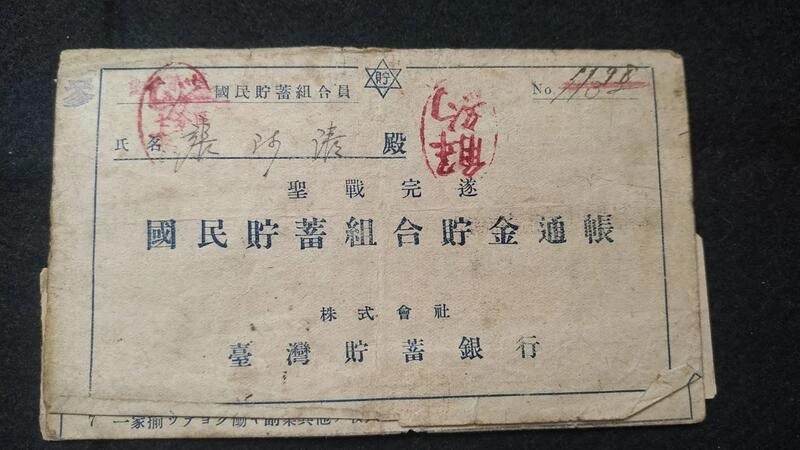 貯
國民貯蓄組合員
No 1198
氏名 張 清 殿
解約
聖戰完遂
國民貯蓄組合貯金通帳
株式會社
臺灣貯蓄銀行
7 一家揃ツテヨク働キ副業其他